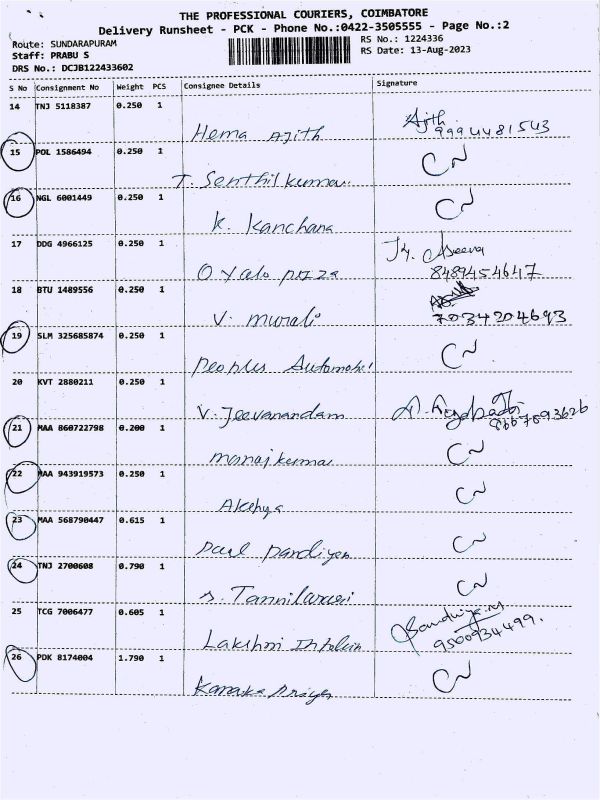 THE PROFESSIONAL COURIERS, COIMBATORE
Delivery Runsheet - PCK - Phone No.:0422-3505555 - Page No.:2
Route: SUNDARAPURAM
RS No.: 1224336
Staff: PRABU S
RS Date: 13-Aug-2023
DRS No.: DCJB122433602
S No Consignment No Weight PCS Consignee Details Signature
14 TNJ 5118387 0.250 1
Hema Ajith Ajith 9994481543
15 POL 1586494 0.250 1
T. Senthil kumar
16 NGL 6001449 0.250 1
K. Kanchana
17 DDG 4966125 0.250 1
Oyalo pizza 8489454647
18 BTU 1489556 0.250 1
V. murali 7034204693
19 SLM 325685874 0.250 1
Peoples
20 KVT 2880211 0.250 1
V. Jeevanandam
21 MAA 860722798 0.200 1
manaj kumar
22 MAA 943919573 0.250 1
23 MAA 568790447 0.615 1
Paul Pandiyan
24 TNJ 2700608 0.790 1
25 TCG 7006477 0.605 1
Lakshmi 9500934499.
26 PDK 8174004 1.790 1